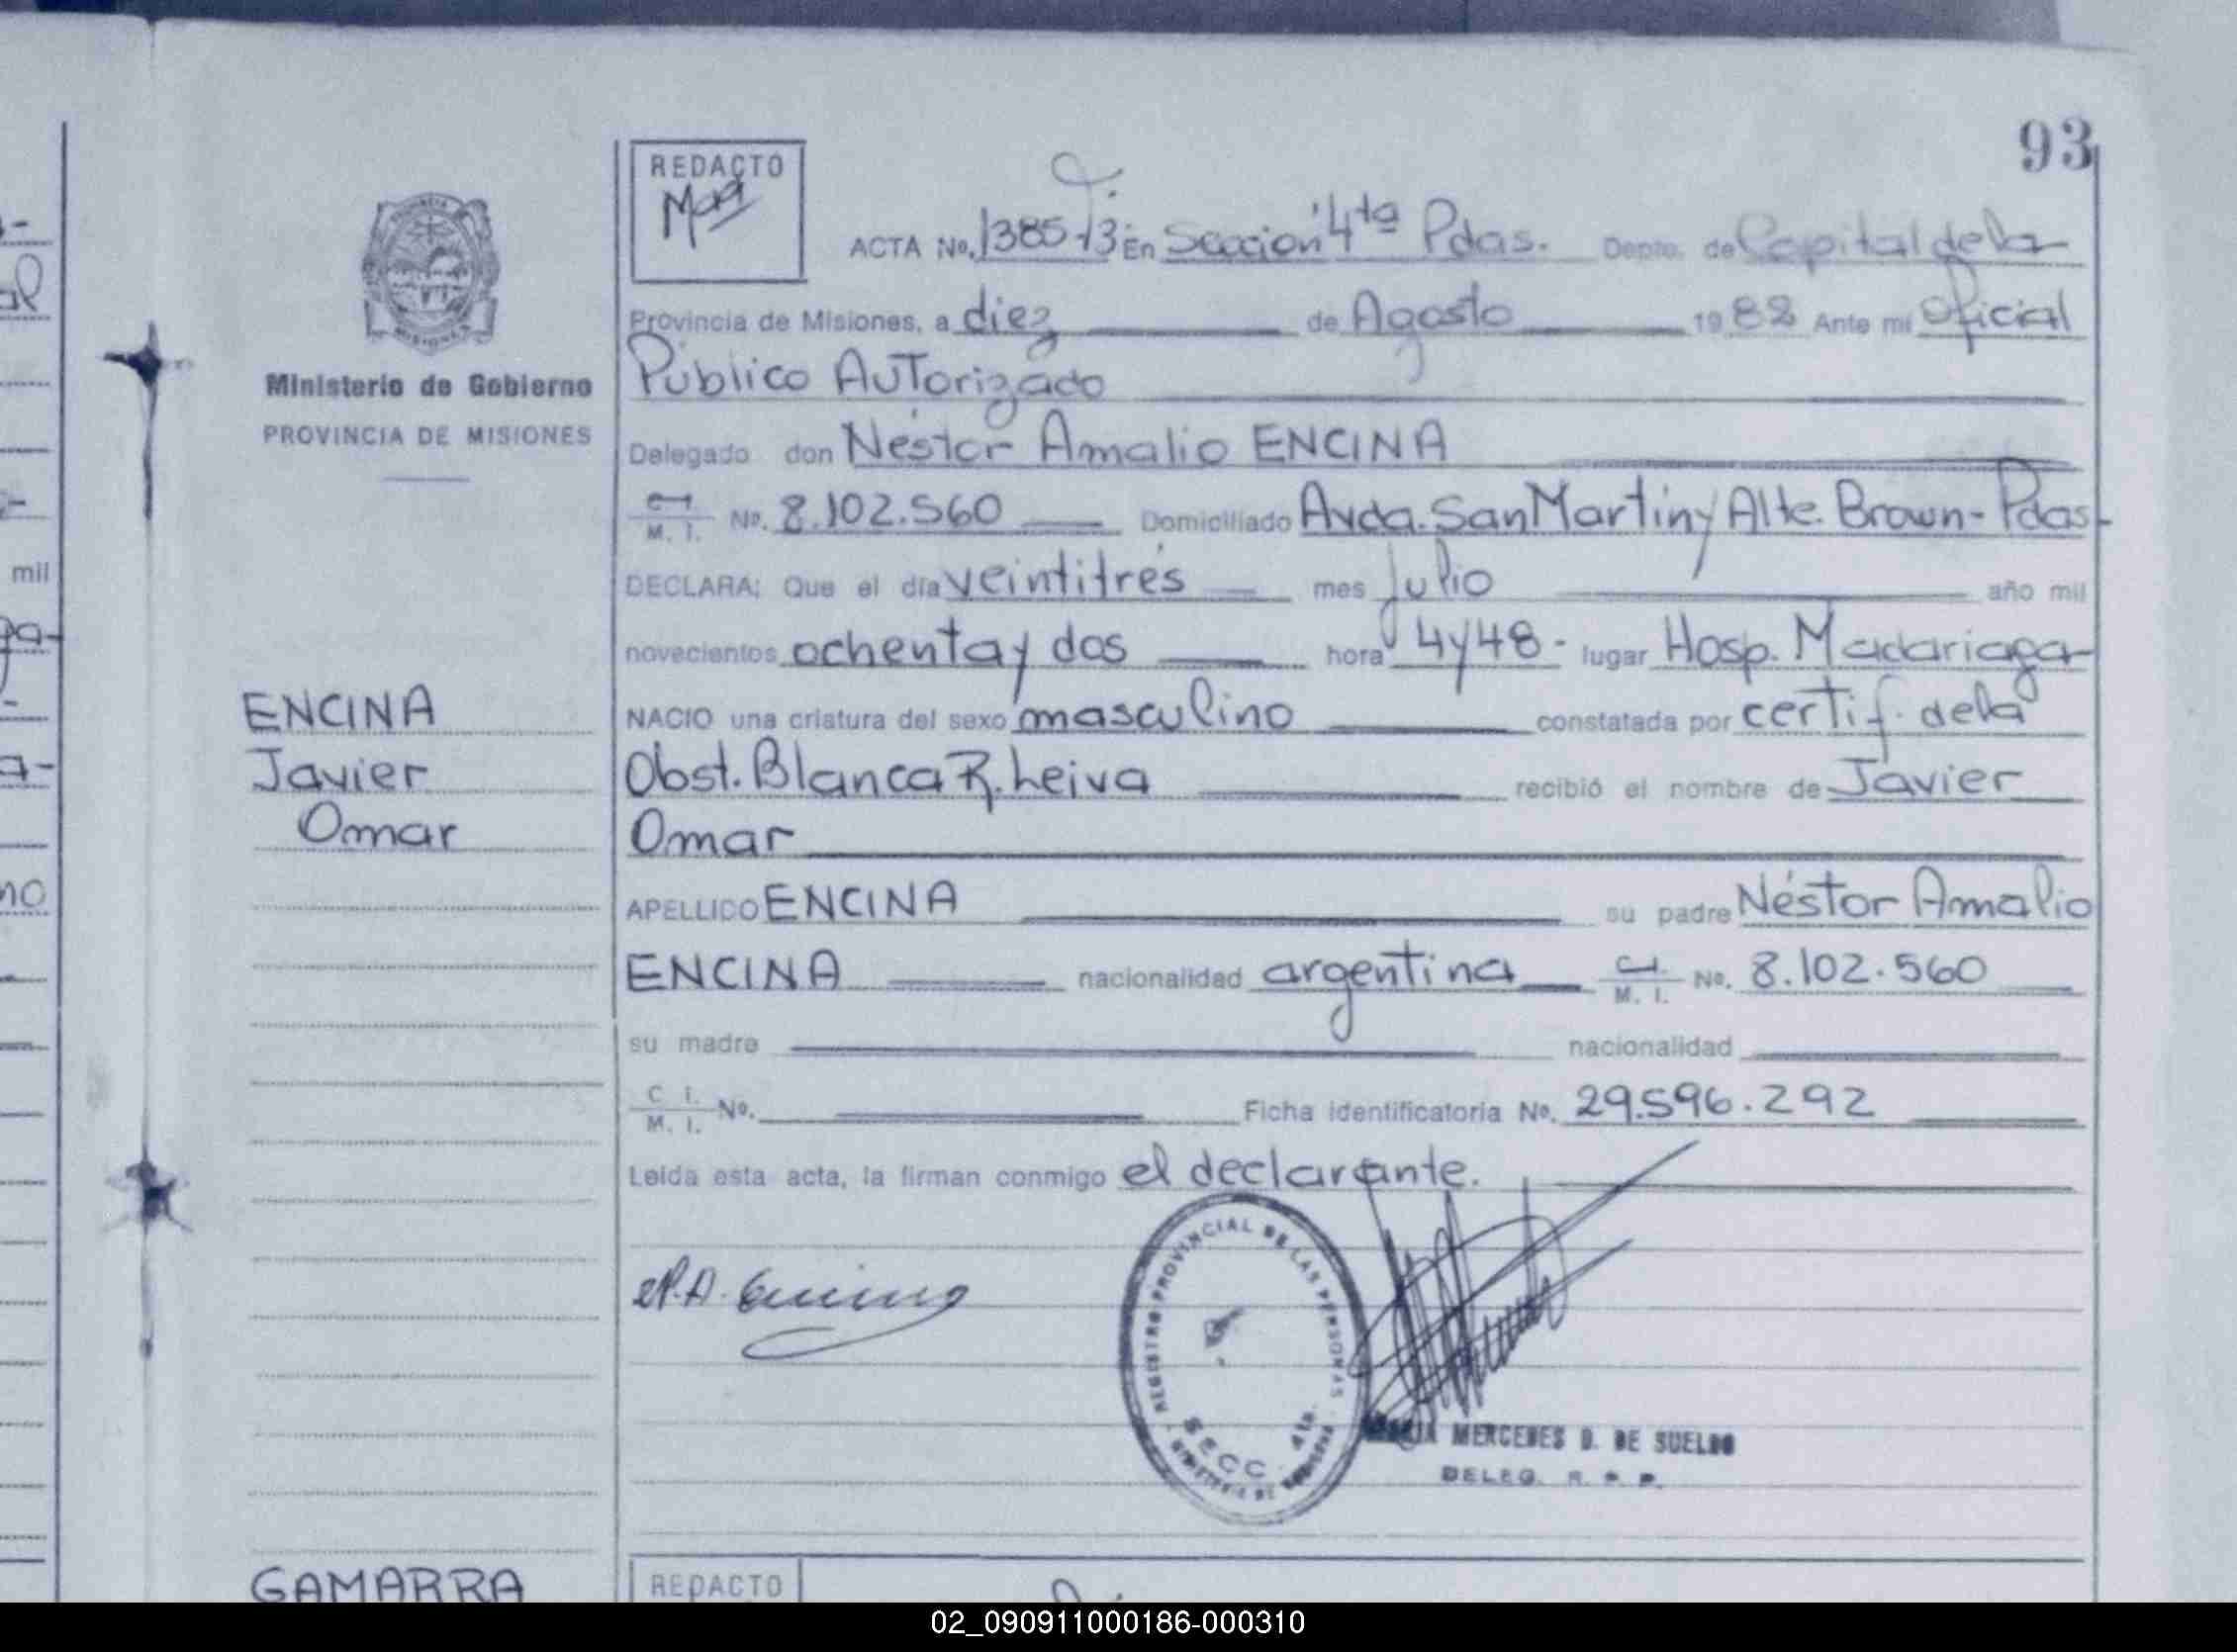 93
REDACTO
ACTA No. 1385-T3 En Sección 4ta Pdas. Depto. de Capital de la
Provincia de Misiones, a diez de Agosto 1982 Ante mi Oficial
Público Autorizado
Ministerio de Gobierno
PROVINCIA DE MISIONES
Delegado don Néstor Amalio ENCINA
C.I. M. I. No. 8.102.560 Domiciliado Avda. San Martín y Alte. Brown - Pdas-
DECLARA: Que el día veintitrés mes Julio año mil
novecientos ochenta y dos hora 4 y 48- lugar Hosp. Madariaga
ENCINA
Javier
Omar
NACIO una criatura del sexo masculino constatada por certif. de la
Obst. Blanca R. Leiva recibió el nombre de Javier
Omar
APELLIDO ENCINA su padre Néstor Amalio
ENCINA nacionalidad argentina C.I. M. I. No. 8.102.560
su madre nacionalidad
C I. M. I. No. Ficha identificatoria No. 29.596.292
Leida esta acta, la firman conmigo el declarante.
REGISTRO PROVINCIAL DE LAS PERSONAS
SECC. 4ta.
MERCEDES D. DE SUELDO
DELEG. R. P. P.
GAMARRA
REDACTO
mil
02_090911000186-000310